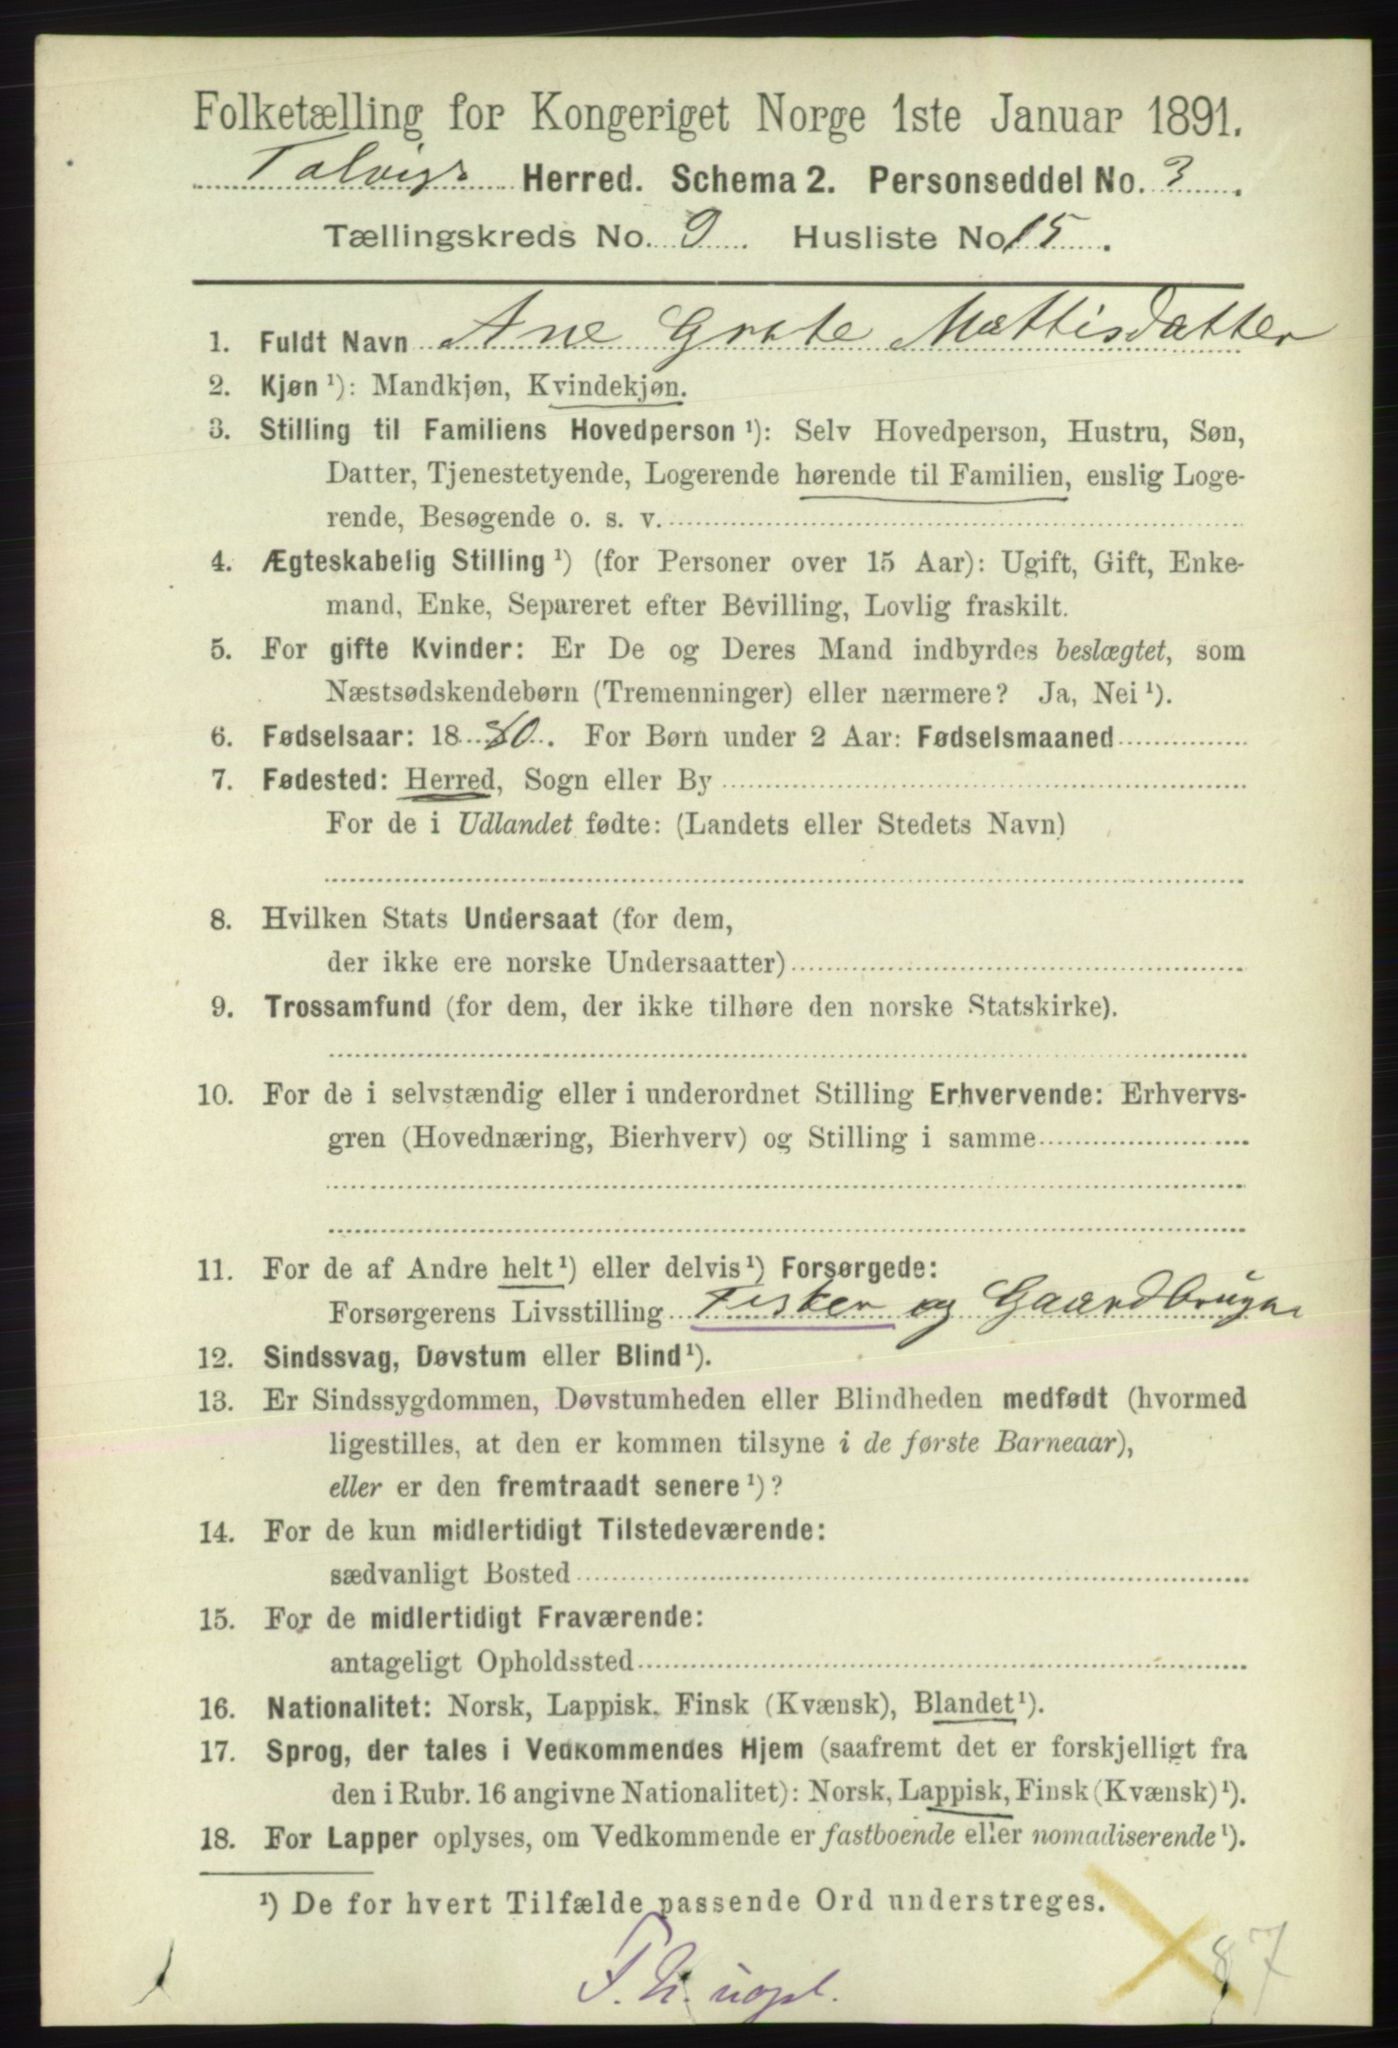 Folketælling for Kongeriget Norge 1ste Januar 1891.
Talvigs Herred. Schema 2. Personseddel No. 3.
Tællingskreds No. 9. Husliste No 15.
1. Fuldt Navn Ane Grete Mattisdatter
2. Kjøn ¹): Mandkjøn, Kvindekjøn.
3. Stilling til Familiens Hovedperson ¹): Selv Hovedperson, Hustru, Søn,
Datter, Tjenestetyende, Logerende hørende til Familien, enslig Loge-
rende, Besøgende o. s. v.
4. Ægteskabelig Stilling ¹) (for Personer over 15 Aar): Ugift, Gift, Enke-
mand, Enke, Separeret efter Bevilling, Lovlig fraskilt.
5. For gifte Kvinder: Er De og Deres Mand indbyrdes beslægtet, som
Næstsødskendebørn (Tremenninger) eller nærmere? Ja, Nei ¹).
6. Fødselsaar: 18 80. For Børn under 2 Aar: Fødselsmaaned
7. Fødested: Herred, Sogn eller By
For de i Udlandet fødte: (Landets eller Stedets Navn)
8. Hvilken Stats Undersaat (for dem,
der ikke ere norske Undersaatter)
9. Trossamfund (for dem, der ikke tilhøre den norske Statskirke).
10. For de i selvstændig eller i underordnet Stilling Erhvervende: Erhvervs-
gren (Hovednæring, Bierhverv) og Stilling i samme
11. For de af Andre helt ¹) eller delvis ¹) Forsørgede:
Forsørgerens Livsstilling Fisker og Gaardbruger
12. Sindssvag, Døvstum eller Blind ¹).
13. Er Sindssygdommen, Døvstumheden eller Blindheden medfødt (hvormed
ligestilles, at den er kommen tilsyne i de første Barneaar),
eller er den fremtraadt senere ¹)?
14. For de kun midlertidigt Tilstedeværende:
sædvanligt Bosted
15. For de midlertidigt Fraværende:
antageligt Opholdssted
16. Nationalitet: Norsk, Lappisk, Finsk (Kvænsk), Blandet ¹).
17. Sprog, der tales i Vedkommendes Hjem (saafremt det er forskjelligt fra
den i Rubr. 16 angivne Nationalitet): Norsk, Lappisk, Finsk (Kvænsk) ¹).
18. For Lapper oplyses, om Vedkommende er fastboende eller nomadiserende ¹).
¹) De for hvert Tilfælde passende Ord understreges.
87